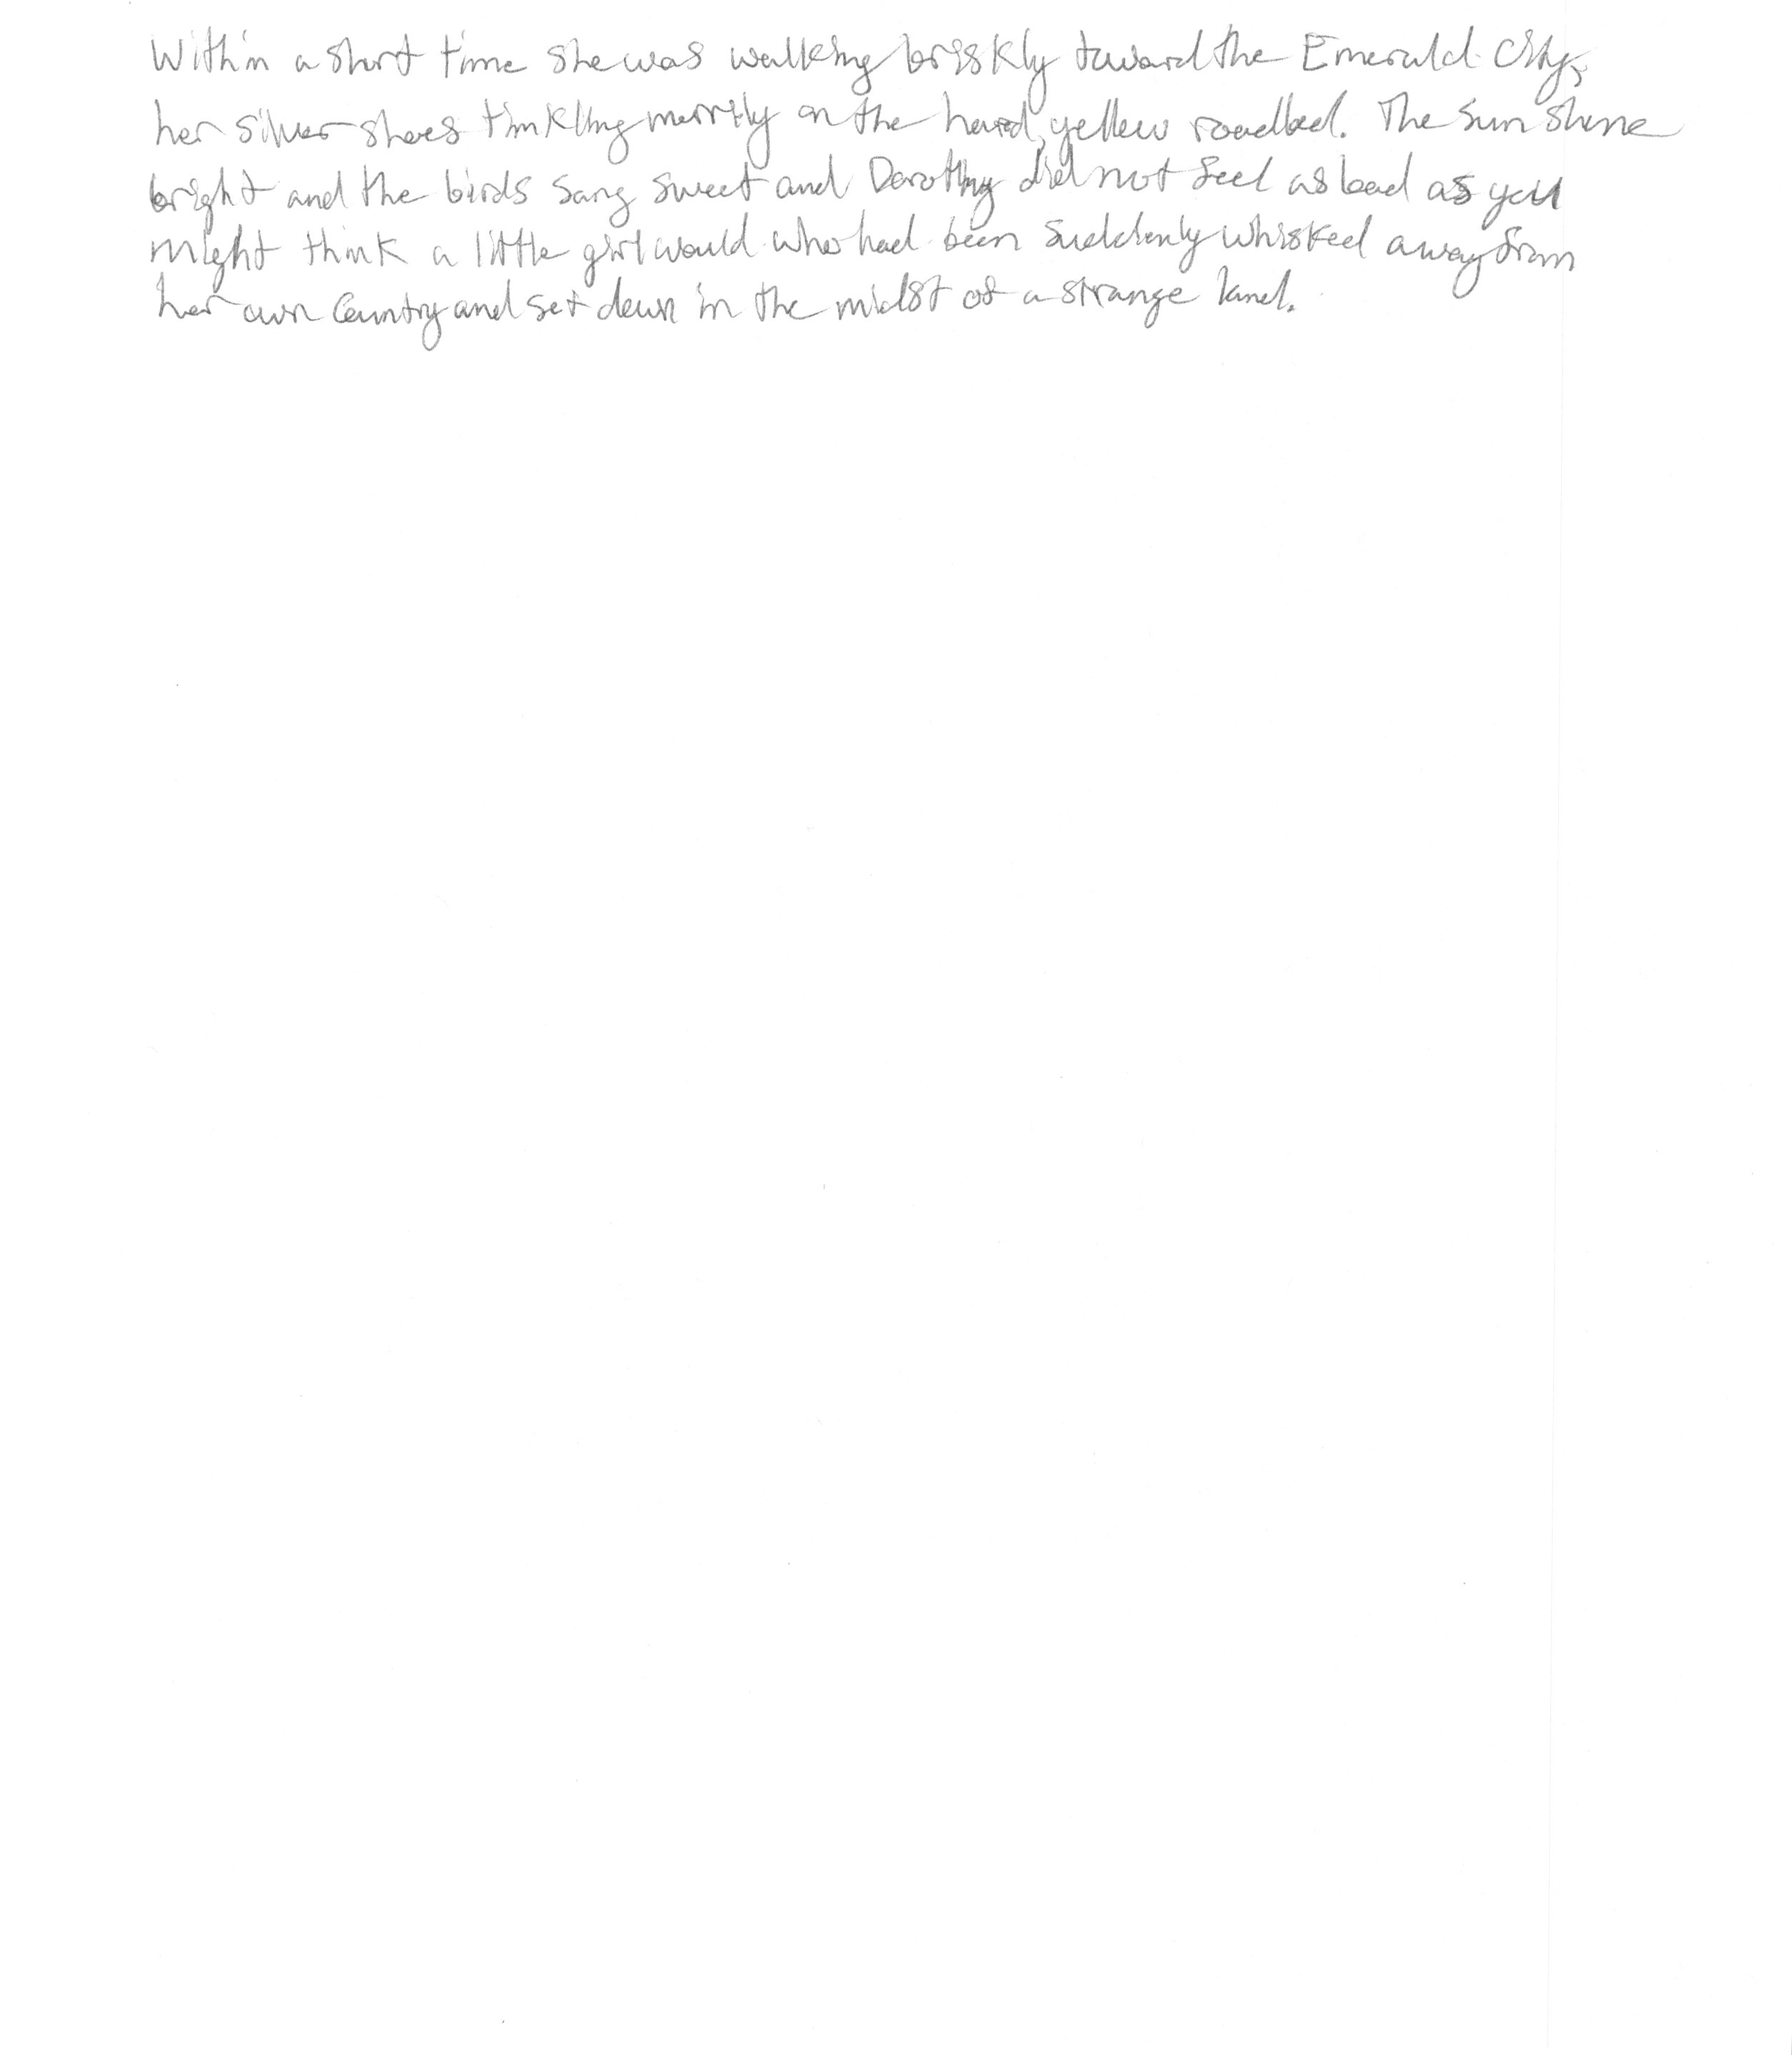 Within a short time she was walking briskly toward the Emerald City,
her silver shoes tinkling merrily on the hard, yellow roadbed. The sun shone
bright and the birds sang sweet and Dorothy did not feel as bad as you
might think a little girl would who had been suddenly whisked away from
her own country and set down in the midst of a strange land.